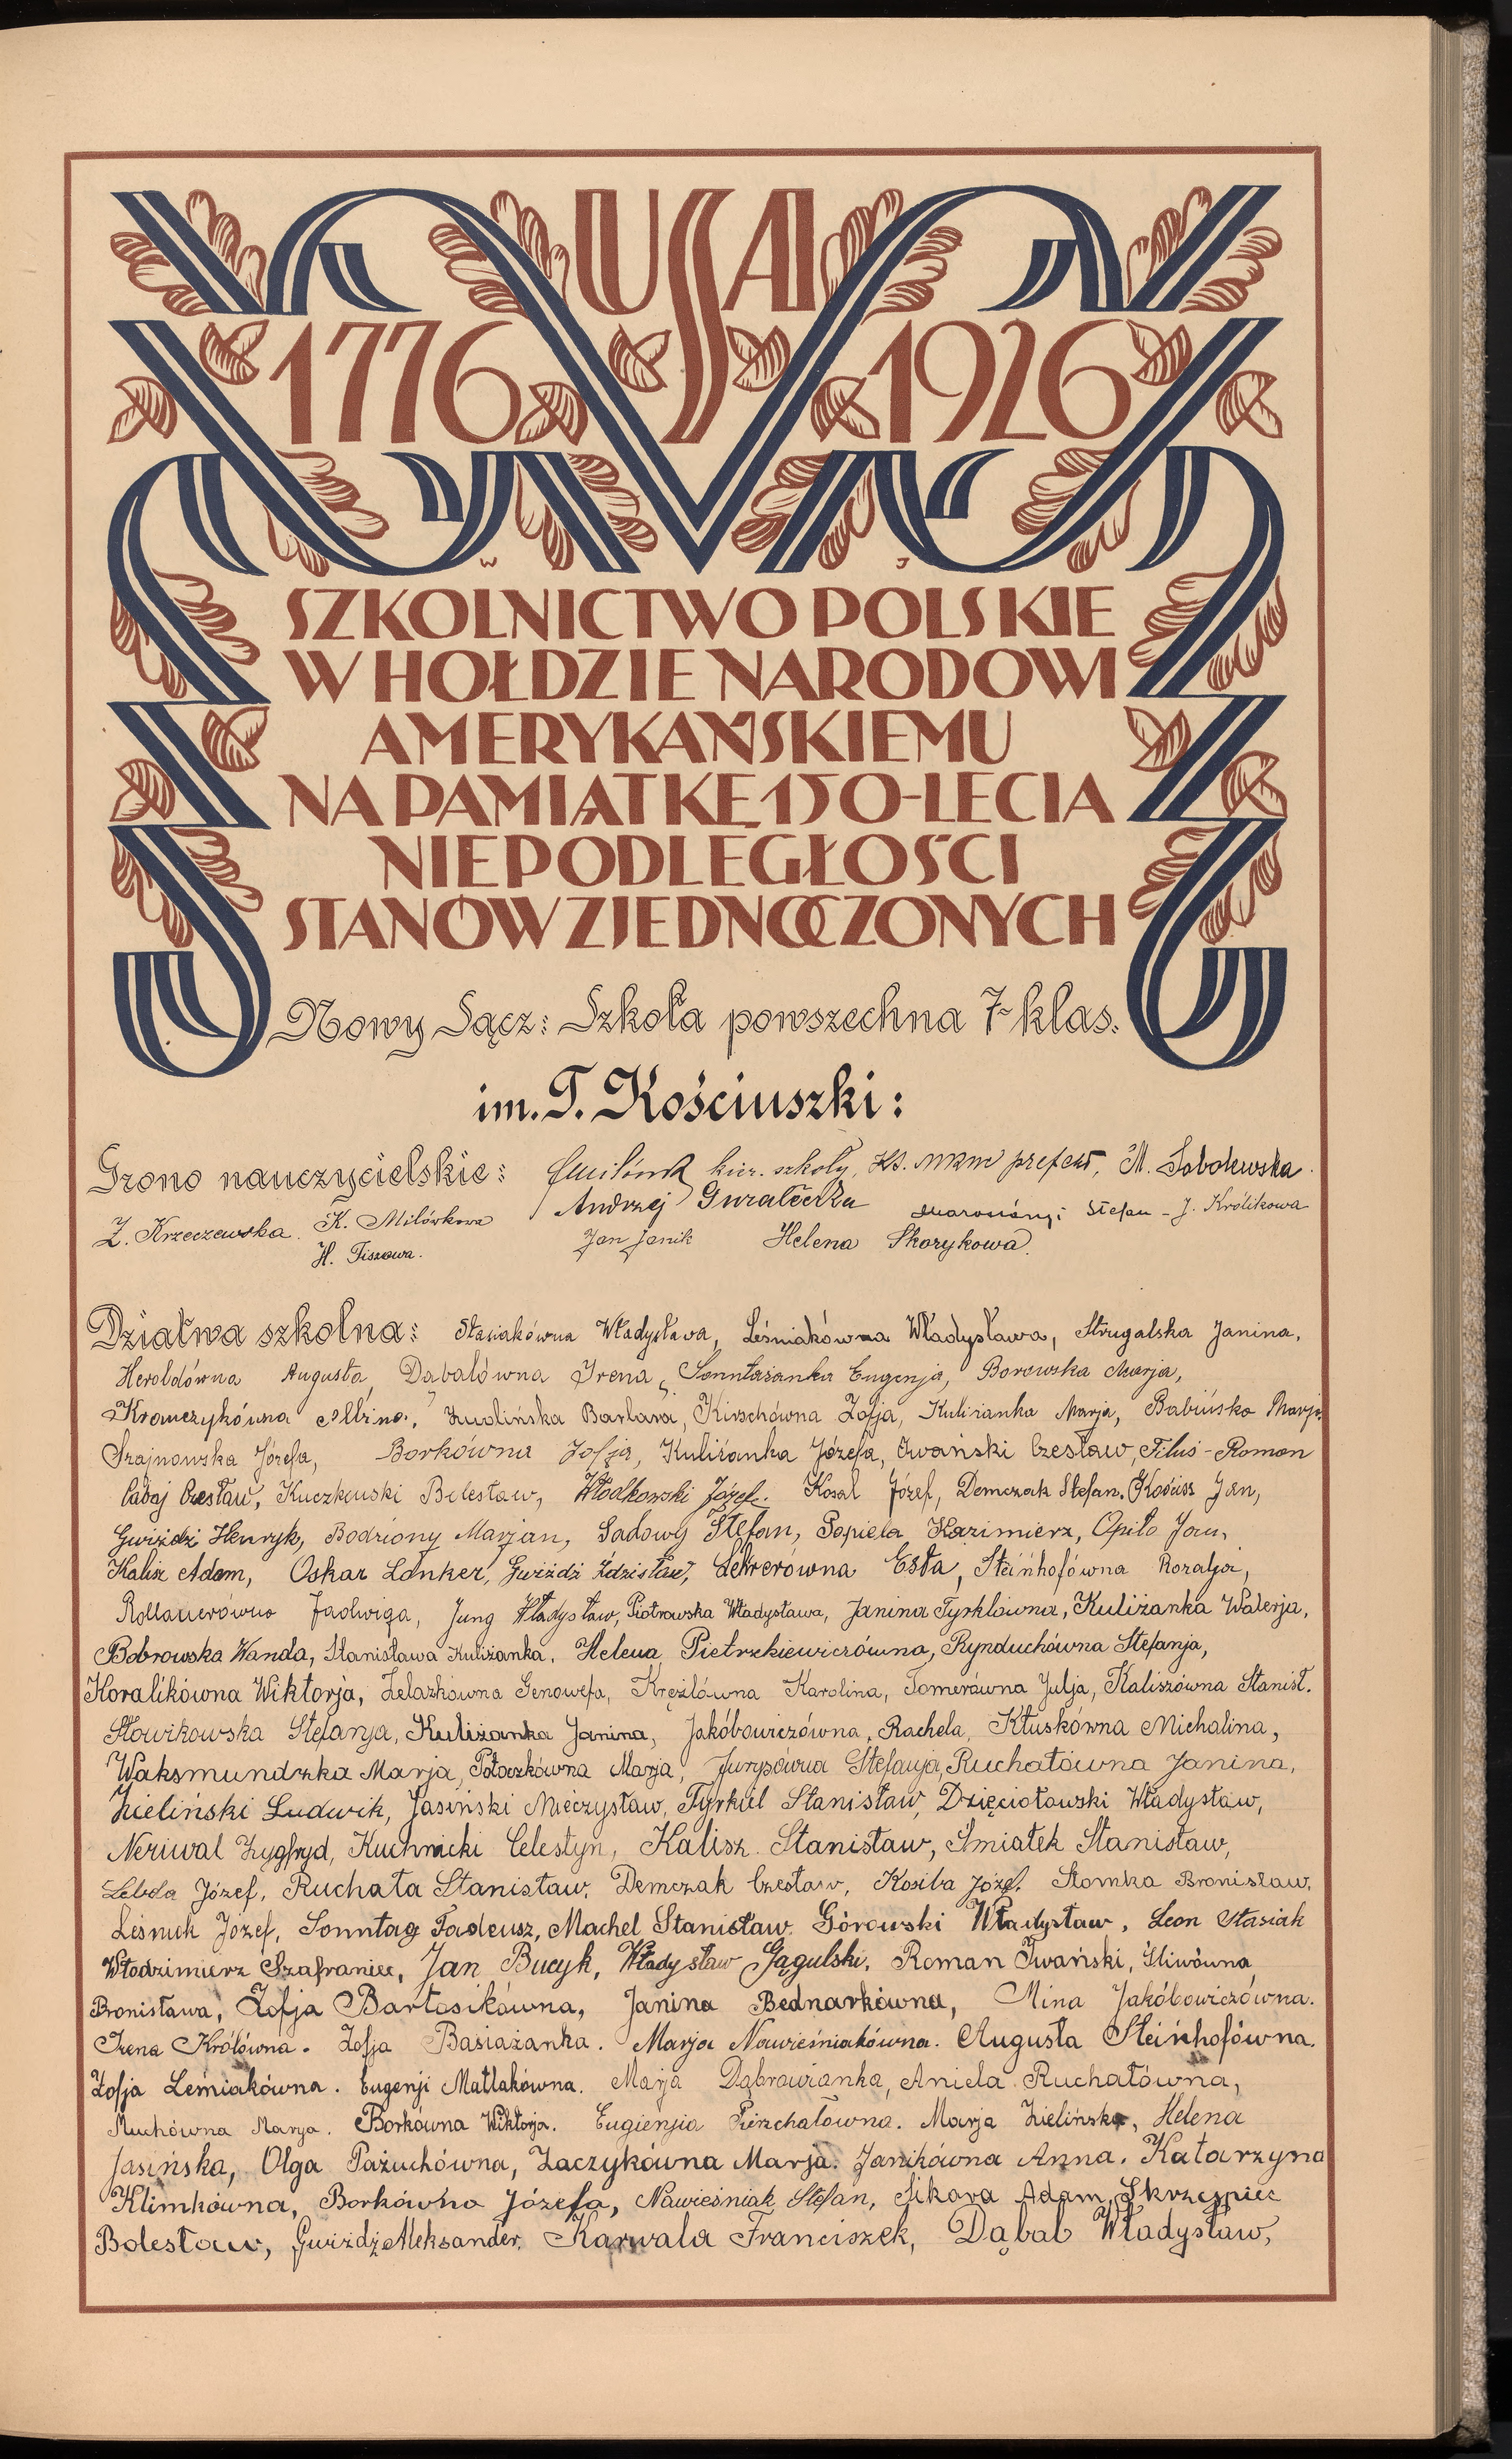 USA
1776 1926
W J
SZKOLNICTWO POLSKIE
W HOŁDZIE NARODOWI
AMERYKAŃSKIEMU
NA PAMIĄTKĘ 150-LECIA
NIEPODLEGŁOŚCI
STANÓW ZJEDNOCZONYCH
Nowy Sącz: Szkoła powszechna 7-klas.
im. T. Kościuszki:
Grono nauczycielskie: kier. szkoły, Ks. prefekt, M. Sobolewska.
Z. Krzeczewska. K. Milówkowa Andrzej Stefan - J. Królikowa
H. Tiszowa. Jan Janik Helena Skorykowa.
Dziatwa szkolna: Stasiakówna Władysława, Leśniakówna Władysława, Strugalska Janina,
Heroldówna Augusta, Dąbalówna Irena, Sonntażanka Eugenja, Borowska Marja,
Krawczykówna Albina, Barbara, Kirschówna Zofja, Kuliżanka Marja, Babińska Marja,
Szajnowska Józefa, Borkówna Zofja, Kuliżanka Józefa, Iwański Czesław, Filuś - Roman
Labaj Czesław, Kuczkowski Bolesław, Włodkowski Józef. Kosal Józef, Demczak Stefan, Jan,
Gwiżdż Henryk, Bodziony Marjan, Sadowy Stefan, Popiela Kazimierz, Opiło Jan,
Kalisz Adam, Oskar Lanker, Gwiżdż Zdzisław, Lehrerówna Esta, Steinhofówna Rozalja,
Rollauerówna Jadwiga, Jung Władysław, Piotrowska Władysława, Janina Tyrklówna, Kuliżanka Walerja,
Bobrowska Wanda, Stanisława Kuliżanka, Helena Pietrzkiewiczówna, Rynduchówna Stefanja,
Koralikówna Wiktorja, Żelazkówna Genowefa, Krężlówna Karolina, Tomerówna Julja, Kaliszówna Stanisł.
Słowikowska Stefanja, Kuliżanka Janina, Jakóbowiczówna Rachela, Kłuskówna Michalina,
Waksmundzka Marja, Potoczkówna Marja, Stefanja, Ruchałówna Janina,
Zieliński Ludwik, Jasiński Mieczysław, Tyrkiel Stanisław, Dzięciołowski Władysław,
Neriwal Zygfryd, Kuchnicki Celestyn, Kalisz Stanisław, Śmiałek Stanisław,
Lebda Józef, Ruchała Stanisław, Demczak Czesław, Kosiba Józef, Słomka Bronisław,
Leśniak Józef, Sonntag Tadeusz, Machel Stanisław, Górowski Władysław, Leon Stasiak
Włodzimierz Szafraniec, Jan Bucyk, Władysław Gągulski, Roman Iwański, Śliwówna
Bronisława, Zofja Bartosikówna, Janina Bednarkówna, Mina Jakóbowiczówna.
Irena Królówna. Zofja Basiażanka. Marja Nowieśniakówna. Augusta Steinhofówna.
Zofja Leśniakówna. Eugenji Matlakówna. Marja Dąbrowianka, Aniela Ruchałówna,
Muchówna Marja. Borkówna Wiktorja. Eugienjia Pierzchałówna. Marja Zielińska, Helena
Jasińska, Olga Pażuchówna, Zaczykówna Marja. Janikówna Anna. Katarzyna
Klimkówna, Borkówna Józefa, Nawieśniak Stefan, Sikora Adam, Skrzespiec
Bolesław, Gwiżdż Aleksander, Karwala Franciszek, Dąbal Władysław,